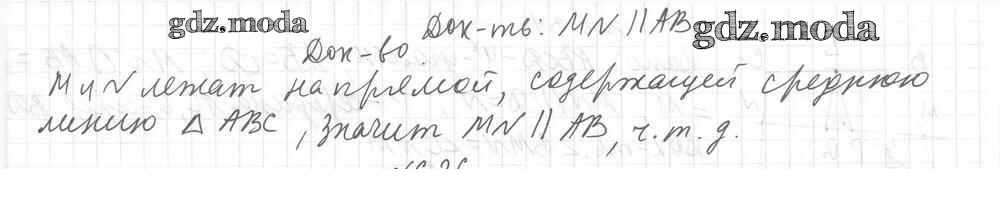 gdz.moda
Док-ть: MN || AB gdz.moda
Док-во.
M и N лежат на прямой, содержащей среднюю
линию △ ABC, значит MN || AB, ч.т.д.